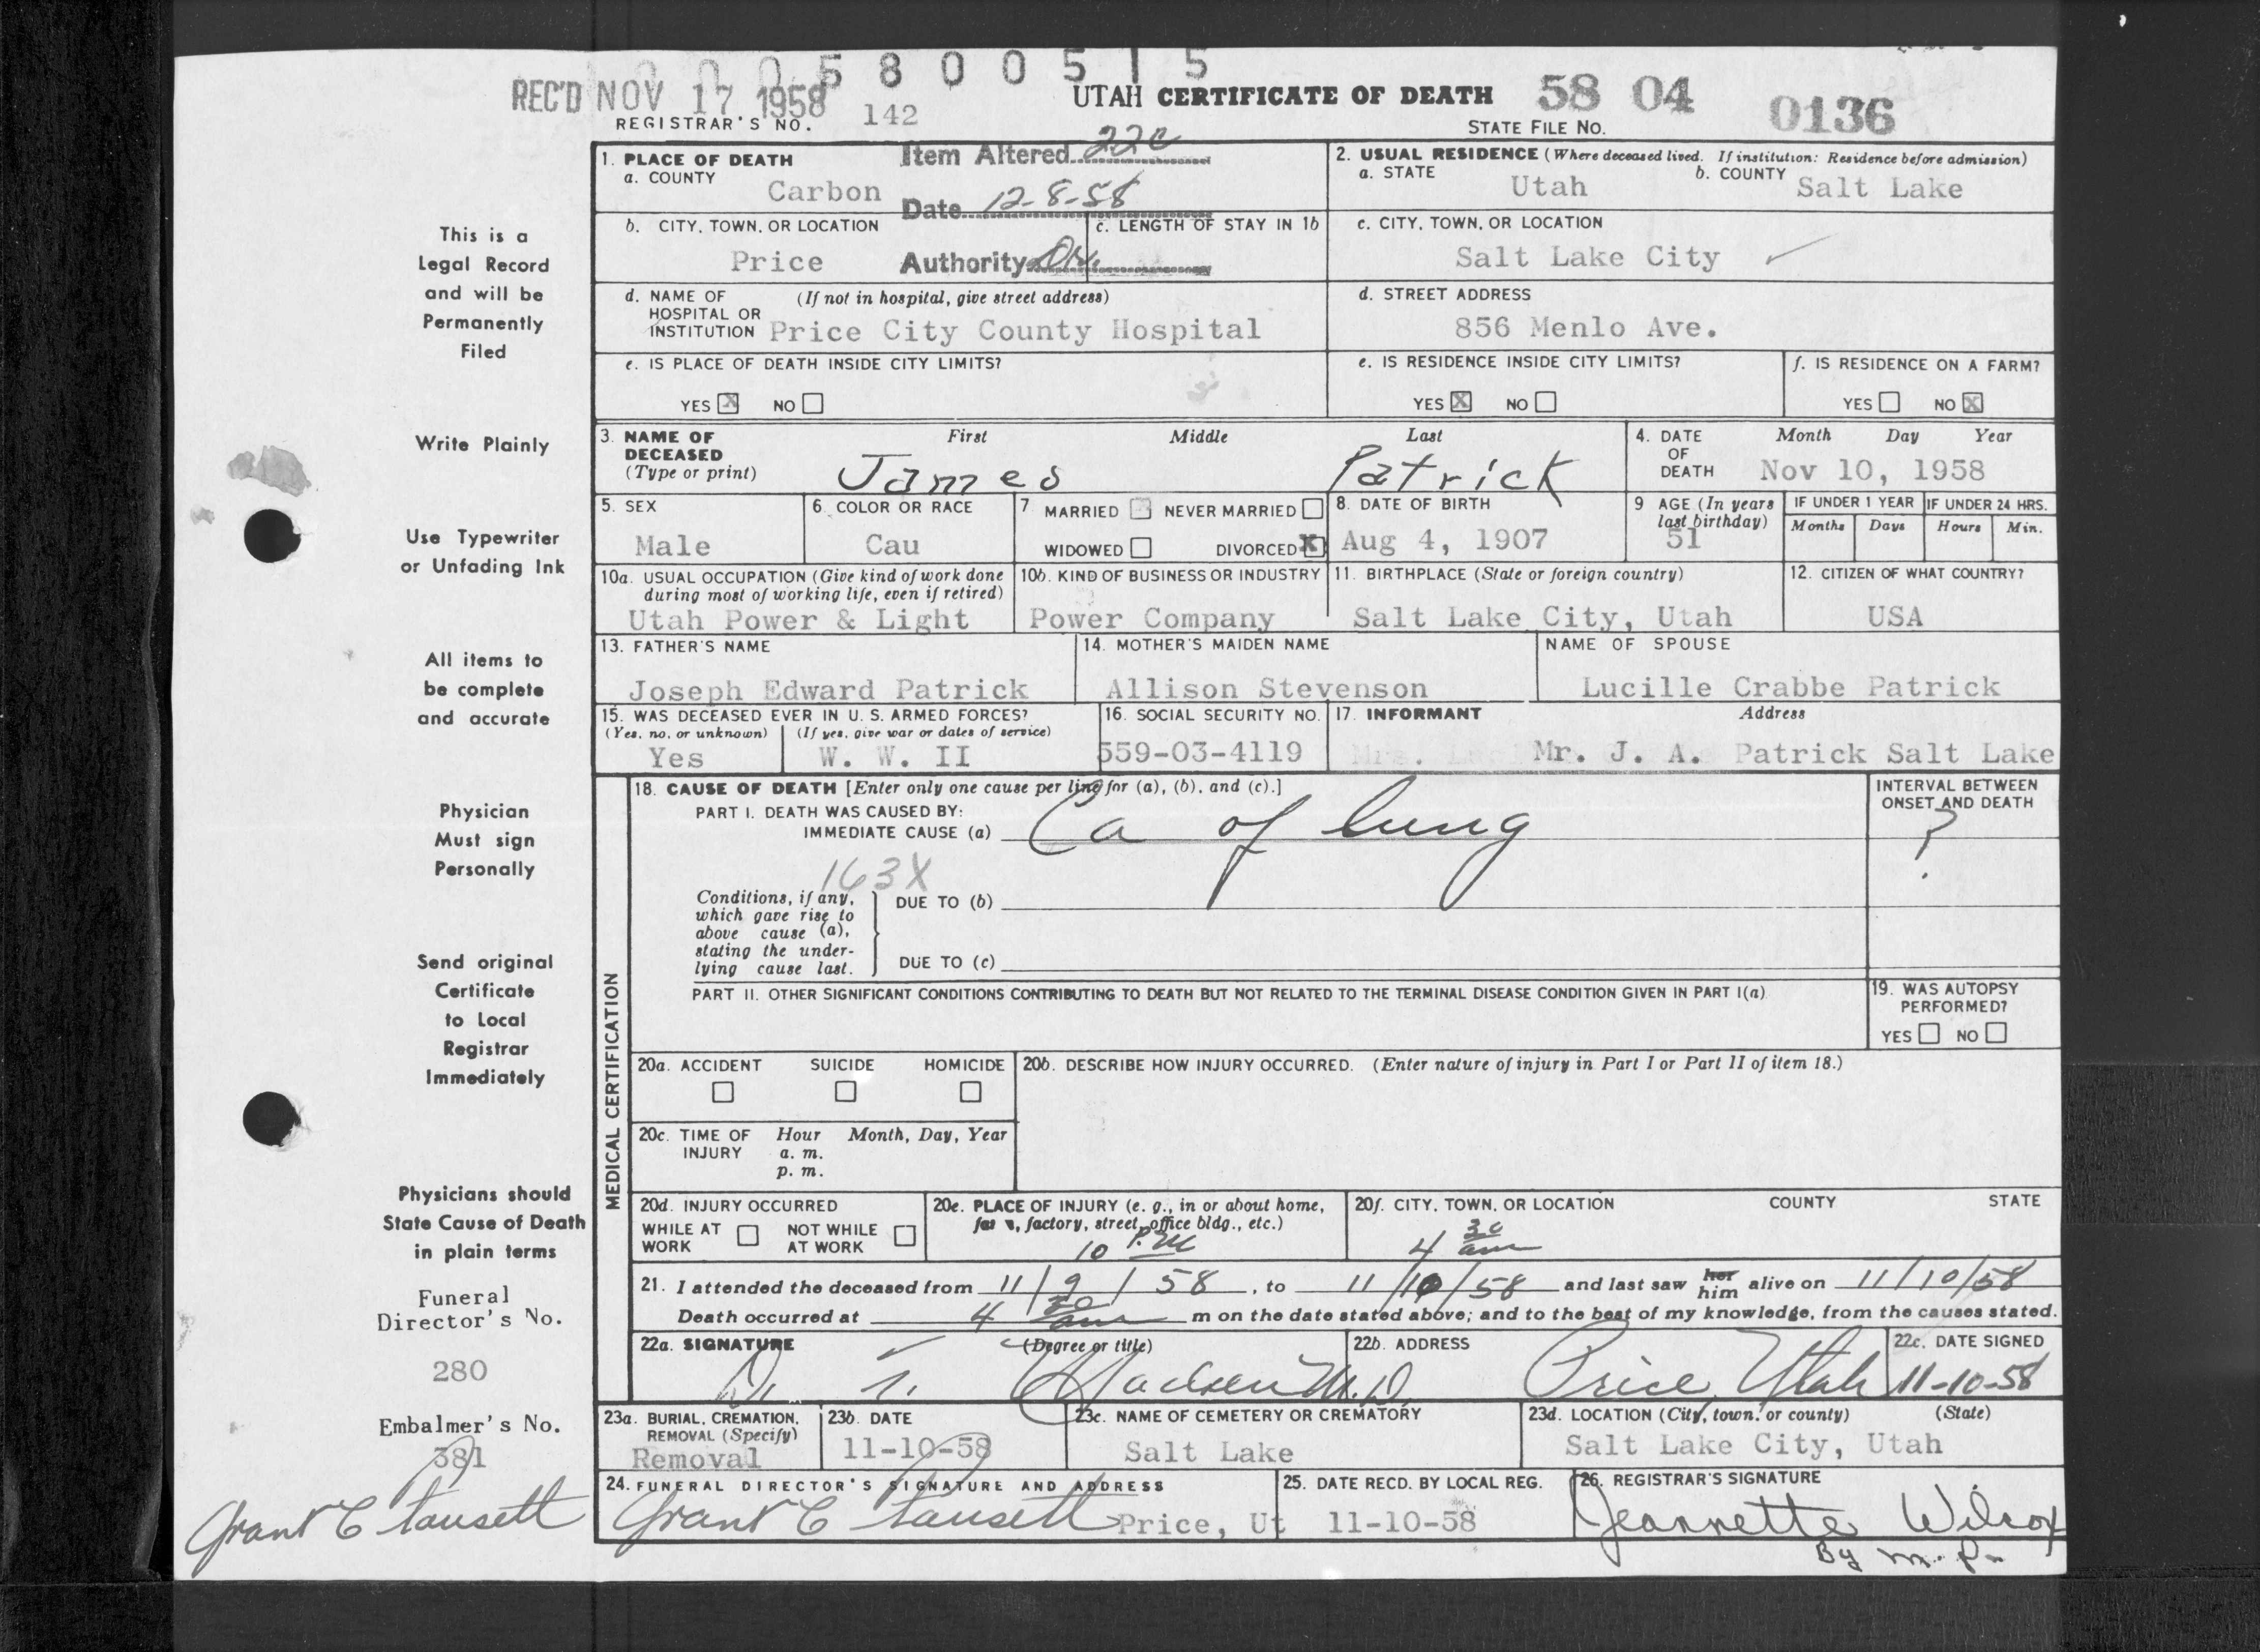 000 5800515
REC'D NOV 17 1958 142 UTAH CERTIFICATE OF DEATH 58 04 0136
REGISTRAR'S NO. STATE FILE NO.
1. PLACE OF DEATH
a. COUNTY
Carbon
Item Altered 22c
Date 12-8-58
2. USUAL RESIDENCE (Where deceased lived. If institution: Residence before admission)
a. STATE Utah b. COUNTY Salt Lake
b. CITY, TOWN, OR LOCATION
Price
Authority
c. LENGTH OF STAY IN 1b
c. CITY, TOWN, OR LOCATION
Salt Lake City
d. NAME OF HOSPITAL OR INSTITUTION (If not in hospital, give street address)
Price City County Hospital
d. STREET ADDRESS
856 Menlo Ave.
e. IS PLACE OF DEATH INSIDE CITY LIMITS?
YES X NO
e. IS RESIDENCE INSIDE CITY LIMITS?
YES X NO
f. IS RESIDENCE ON A FARM?
YES NO X
3. NAME OF DECEASED (Type or print)
First Middle Last
James Patrick
4. DATE OF DEATH Month Day Year
Nov 10, 1958
5. SEX
Male
6. COLOR OR RACE
Cau
7 MARRIED NEVER MARRIED
WIDOWED DIVORCED X
8. DATE OF BIRTH
Aug 4, 1907
9 AGE (In years last birthday)
51
IF UNDER 1 YEAR
Months Days
IF UNDER 24 HRS.
Hours Min.
10a. USUAL OCCUPATION (Give kind of work done during most of working life, even if retired)
Utah Power & Light
10b. KIND OF BUSINESS OR INDUSTRY
Power Company
11. BIRTHPLACE (State or foreign country)
Salt Lake City, Utah
12. CITIZEN OF WHAT COUNTRY?
USA
13. FATHER'S NAME
Joseph Edward Patrick
14. MOTHER'S MAIDEN NAME
Allison Stevenson
NAME OF SPOUSE
Lucille Crabbe Patrick
15. WAS DECEASED EVER IN U. S. ARMED FORCES?
(Yes, no, or unknown) (If yes, give war or dates of service)
Yes W. W. II
16. SOCIAL SECURITY NO.
559-03-4119
17. INFORMANT Address
Mr. J. A. Patrick Salt Lake
MEDICAL CERTIFICATION
18. CAUSE OF DEATH [Enter only one cause per line for (a), (b), and (c).]
PART I. DEATH WAS CAUSED BY:
IMMEDIATE CAUSE (a) Ca of lung
INTERVAL BETWEEN ONSET AND DEATH
?
163X
Conditions, if any, which gave rise to above cause (a), stating the underlying cause last.
DUE TO (b)
DUE TO (c)
PART II. OTHER SIGNIFICANT CONDITIONS CONTRIBUTING TO DEATH BUT NOT RELATED TO THE TERMINAL DISEASE CONDITION GIVEN IN PART I(a)
19. WAS AUTOPSY PERFORMED?
YES NO
20a. ACCIDENT SUICIDE HOMICIDE
20b. DESCRIBE HOW INJURY OCCURRED. (Enter nature of injury in Part I or Part II of item 18.)
20c. TIME OF INJURY Hour Month, Day, Year
a. m.
p. m.
20d. INJURY OCCURRED
WHILE AT WORK NOT WHILE AT WORK
20e. PLACE OF INJURY (e. g., in or about home, farm, factory, street, office bldg., etc.)
20f. CITY, TOWN, OR LOCATION COUNTY STATE
10 P.M 4 30 am
21. I attended the deceased from 11/9/58, to 11/10/58 and last saw her him alive on 11/10/58
Death occurred at 4 30 am m on the date stated above; and to the best of my knowledge, from the causes stated.
22a. SIGNATURE (Degree or title)
Madsen M.D.
22b. ADDRESS
Price Utah
22c. DATE SIGNED
11-10-58
23a. BURIAL, CREMATION, REMOVAL (Specify)
Removal
23b. DATE
11-10-58
23c. NAME OF CEMETERY OR CREMATORY
Salt Lake
23d. LOCATION (City, town, or county) (State)
Salt Lake City, Utah
24. FUNERAL DIRECTOR'S SIGNATURE AND ADDRESS
Grant C Fausett Price, Ut
25. DATE RECD. BY LOCAL REG.
11-10-58
26. REGISTRAR'S SIGNATURE
Jeannette Wilcox
By m. P.
This is a
Legal Record
and will be
Permanently
Filed
Write Plainly
Use Typewriter
or Unfading Ink
All items to
be complete
and accurate
Physician
Must sign
Personally
Send original
Certificate
to Local
Registrar
Immediately
Physicians should
State Cause of Death
in plain terms
Funeral
Director's No.
280
Embalmer's No.
381
Grant C Fausett